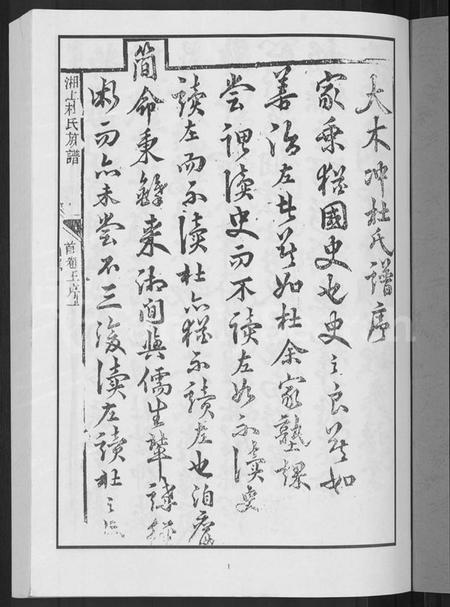 大木冲杜氏譜序
家乘猶國史也史之良莫如
善治左者莫如杜余家塾課
嘗謂讀史而不讀左如不讀史
讀左而不讀杜亦猶不讀左也洎
簡命秉　来湘間與儒生
衡而亦未嘗不三復讀左讀杜之
湘上杜氏族譜
首卷王序
1